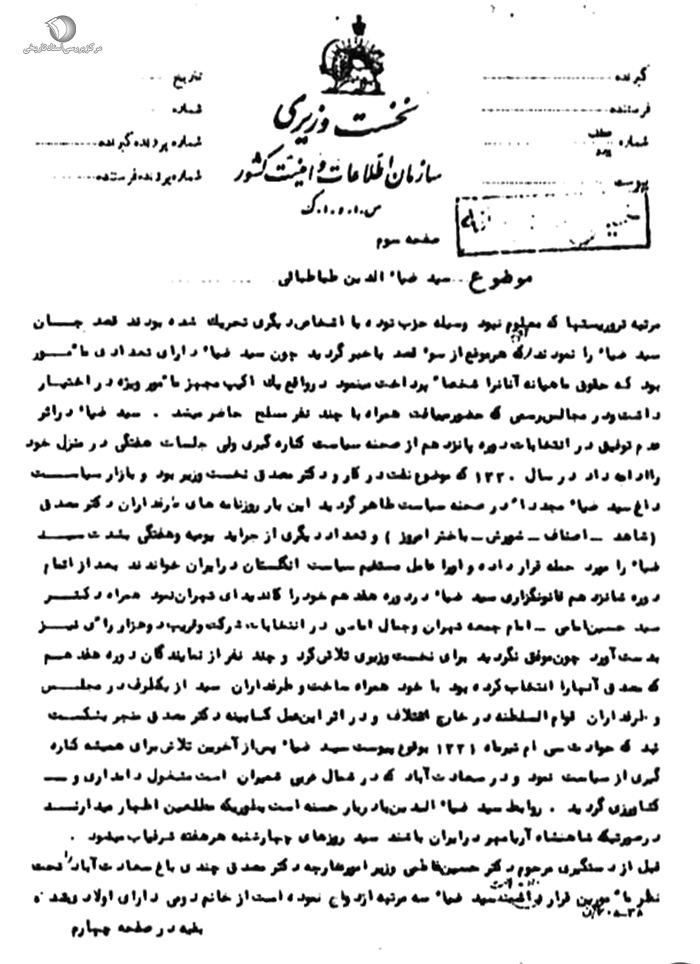 مرکز بررسی اسناد تاریخی
نخست وزیری
سازمان اطلاعات و امنیت کشور
س.ا.و.ا.ک
گیرنده
فرستنده
شماره
پیوست
تاریخ
شماره
شماره پرونده گیرنده
شماره پرونده فرستنده
صفحه سوم
موضوع سید ضیاء الدین طباطبائی
مرتبه تروریستها که معلوم نبود وسیله حزب توده یا اشخاص دیگری تحریك شده بودند قصد جان
سید ضیاء را نمودند که هر موقع از سوء قصد باخبر گردید چون سید ضیاء دارای تعدادی مأمور
بود که حقوق ماهیانه آنانرا شخصاً پرداخت مینمود در واقع یك اکیپ مجهز مأمور ویژه در اختیار
داشت و در مجالس رسمی که حضور مییافت همراه با چند نفر مسلح حاضر میشد . سید ضیاء در اثر
عدم توفیق در انتخابات دوره پانزدهم از صحنه سیاست کناره گیری ولی جلسات هفتگی در منزل خود
را ادامه داد در سال ۱۳۳۰ که موضوع نفت در کار و دکتر مصدق نخست وزیر بود و بازار سیاست
داغ سید ضیاء مجدداً در صحنه سیاست ظاهر گردید این بار روزنامه های طرفداران دکتر مصدق
(شاهد ـ اصناف ـ شورش ـ باختر امروز ) و تعداد دیگری از جراید یومیه و هفتگی بشدت سید
ضیاء را مورد حمله قرار داده و اورا عامل مستقیم سیاست انگلستان در ایران خواندند بعد از اتمام
دوره شانزدهم قانونگزاری سید ضیاء در دوره هفدهم خود را کاندیدای تهران نمود همراه دکتر
سید حسین امامی ـ امام جمعه تهران و جمال امامی در انتخابات شرکت و قریب دو هزار رأی نیز
بدست آورد چون موفق نگردید برای نخست وزیری تلاش کرد و چند نفر از نمایندگان دوره هفدهم
که مصدق آنها را انتخاب کرده بود با خود همراه ساخت و طرفداران سید از یکطرف در مجلس
و طرفداران قوام السلطنه در خارج ائتلاف و در اثر این عمل کابینه دکتر مصدق منجر بشکست
شد که حوادث سی ام تیرماه ۱۳۳۱ بوقوع پیوست سید ضیاء پس از آخرین تلاش برای همیشه کناره
گیری از سیاست نمود و در سعادت آباد که در شمال غربی شمیران است مشغول دامداری و ـ
کشاورزی گردید . روابط سید ضیاء الدین با دربار حسنه است بطوریکه مطلعین اظهار میدارند
در صورتیکه شاهنشاه آریامهر در ایران باشند سید روزهای چهارشنبه هر هفته شرفیاب میشود .
قبل از دستگیری مرحوم دکتر حسین فاطمی وزیر امور خارجه دکتر مصدق چندی باغ سعادت آباد را تحت
نظر مأمورین قرار سید ضیاء سه مرتبه ازدواج نموده است از خانم دومی دارای اولاد
بقیه در صفحه چهارم